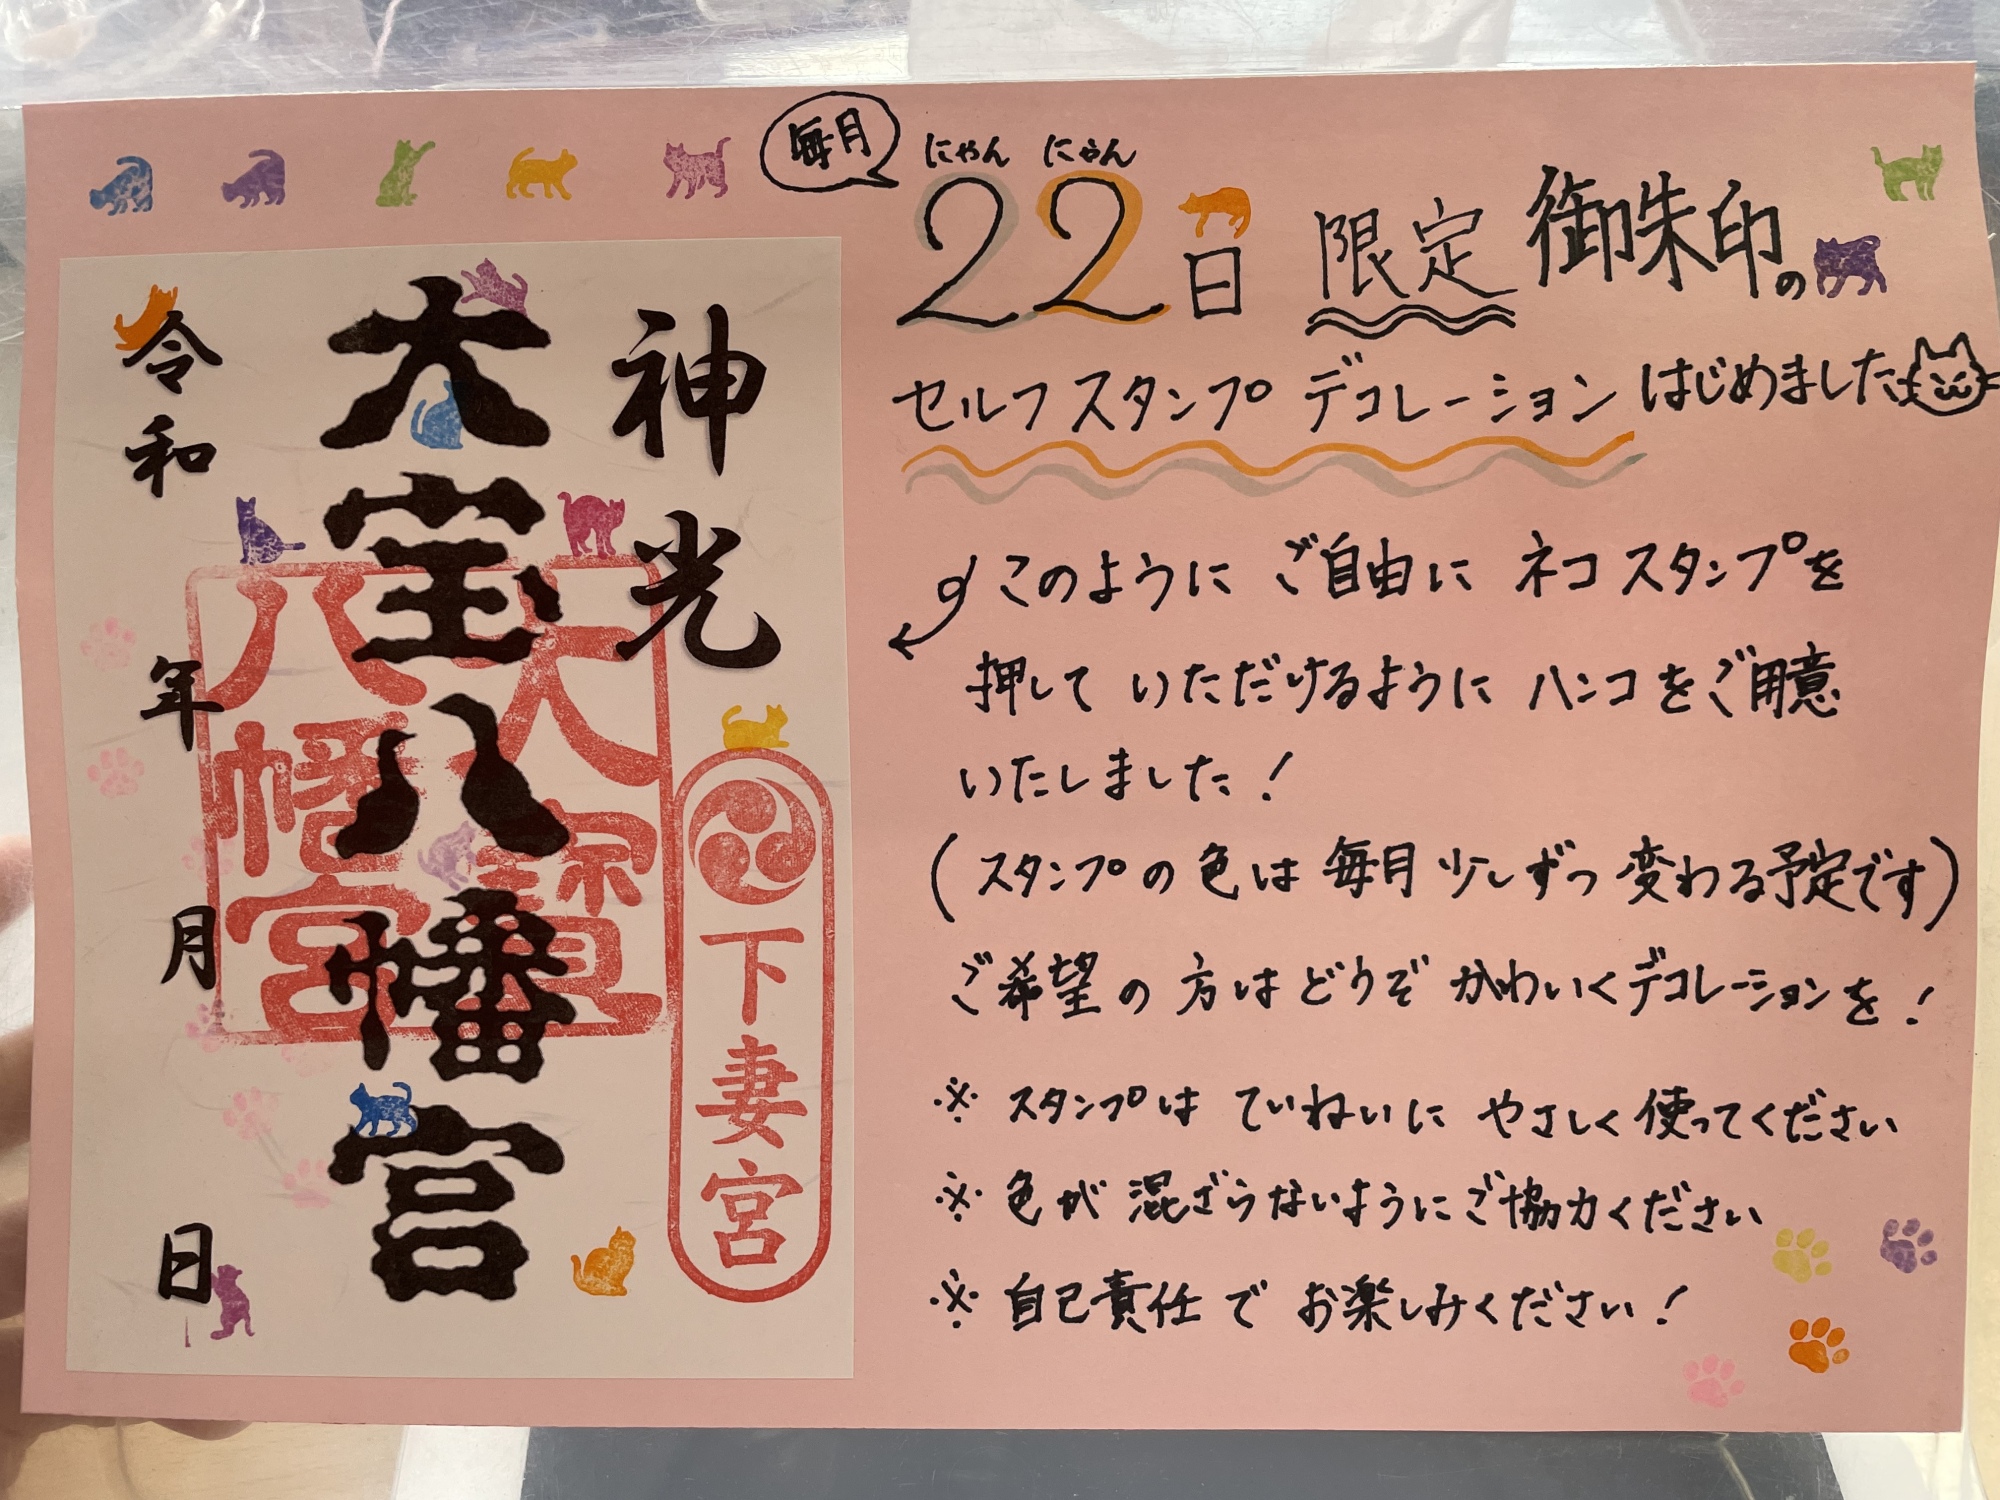 毎月
にゃん にゃん
22日 限定 御朱印の
セルフスタンプ デコレーション はじめました
このように ご自由に ネコ スタンプを
押して いただけるように ハンコをご用意
いたしました!
(スタンプの 色は 毎月 少しずつ 変わる予定です)
ご希望の 方は どうぞ かわいく デコレーションを!
※ スタンプは ていねいに やさしく 使ってください
※ 色が 混ざらないようにご協力ください
※ 自己責任で お楽しみください!
神光
大宝八幡宮
令和 年 月 日
大寶
八幡宮
下妻宮